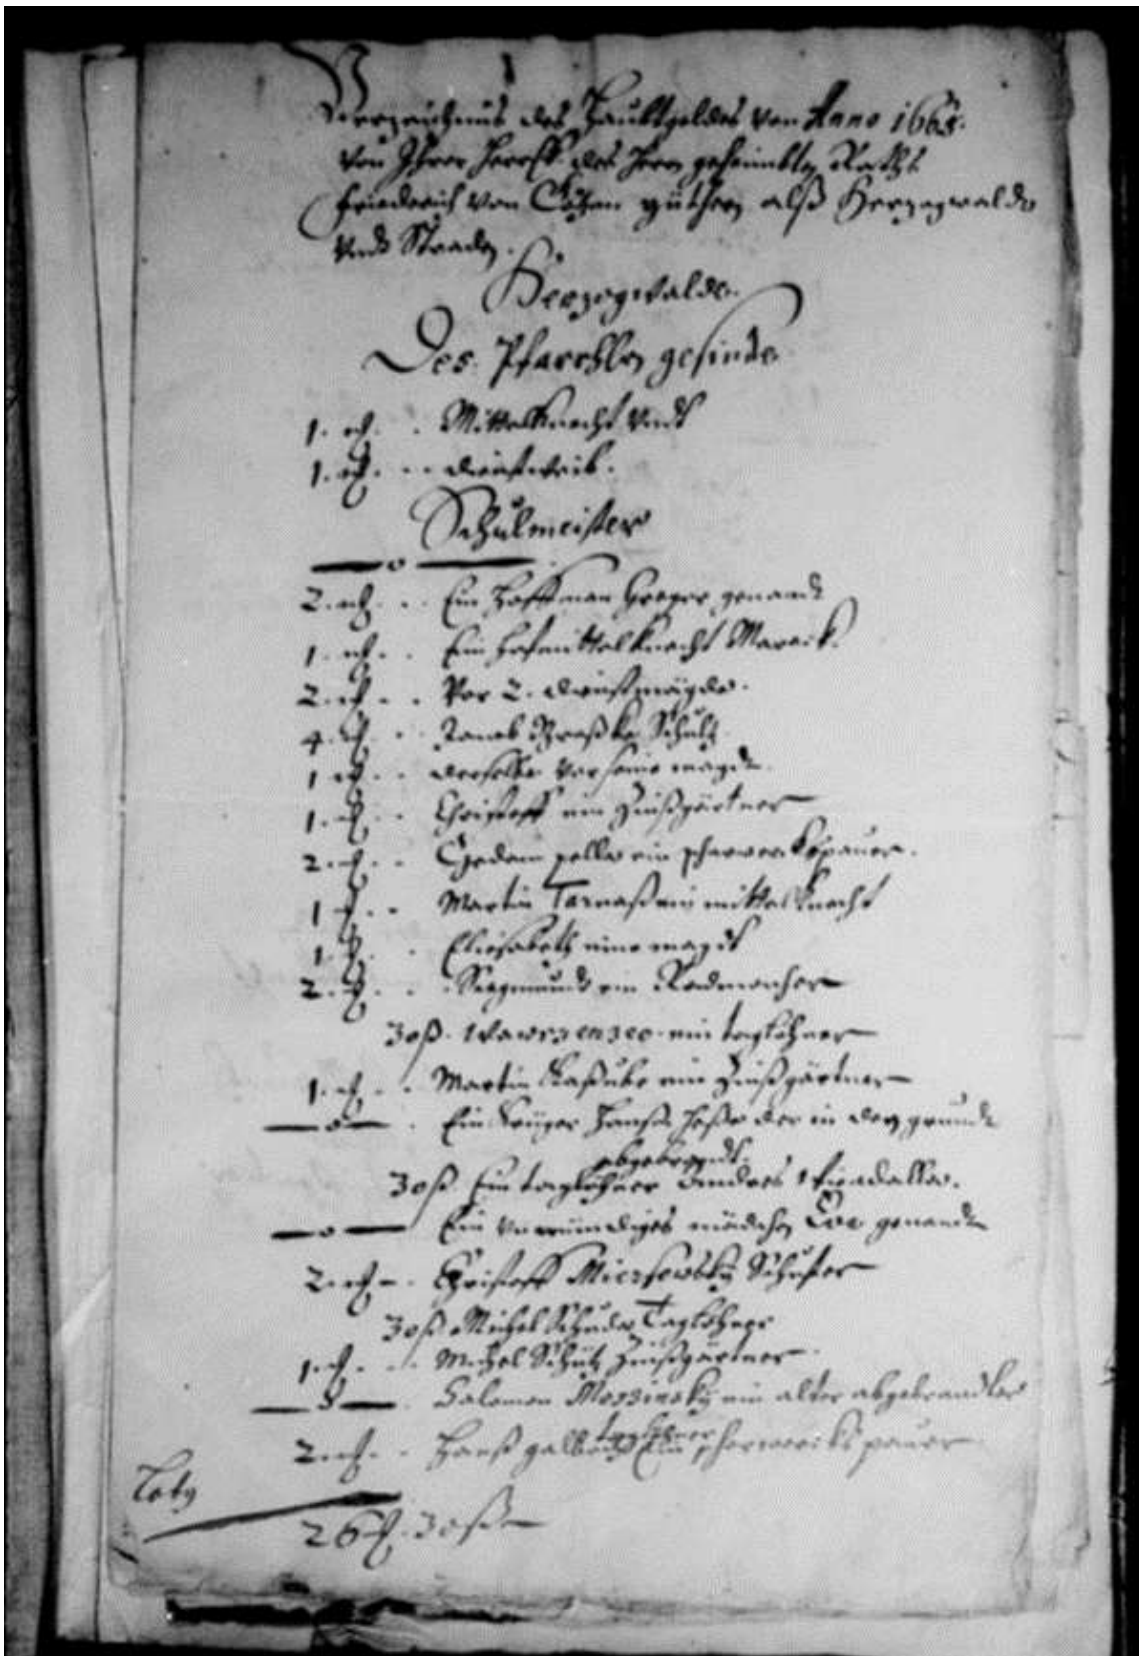 Verzeichnus des Haubtgeldes von Anno 1663.
von Ihrer des Herrn geheimbten Raths
Friederich von güthern alß Herzogwalde
vndt Straden.
Herzogwalde.
Des Pfarrhern gesinde
1. fl. . . Mittelknecht vndt
1. fl. . . dienstweib.
Schulmeister
— o —
2. fl. . . Ein Hoffman Greger genandt
1. fl. . . Ein Hofmittelknecht
2. fl. . . Vor 2. dienstmägde.
4. fl. . . Schultz
1 fl. . . derselbe vor seine magdt.
1. fl. . . Christoff ein Zinßgärtner
2. fl. . . ein scharwerkspauer.
1 fl. . . Martin Tarnaß ein mittelknecht
1. fl. . . Eliesabeth eine magdt
2. fl. . . Siegmundt ein Radmacher
30 ß. Wawrzenzeo ein taglöhner
1. fl. . . Martin Kaßube ein Zinßgärtner
— o — . Ein Krüger Hanß der in den grundt
abgebrandt.
30 ß. Ein taglöhner Andres
— o — Ein vnmündiges mädchen Eva genandt
2. fl. – . Christoff Schuster
30 ß. Michel Taglöhner
1. fl. . . Michel Schütz Zinßgärtner
— 8 — . Salomon Moszinsky ein alter abgebrandter
taglöhner
2. fl. . . Hanß Ein scharwerckspauer
26 fl. 30 ß